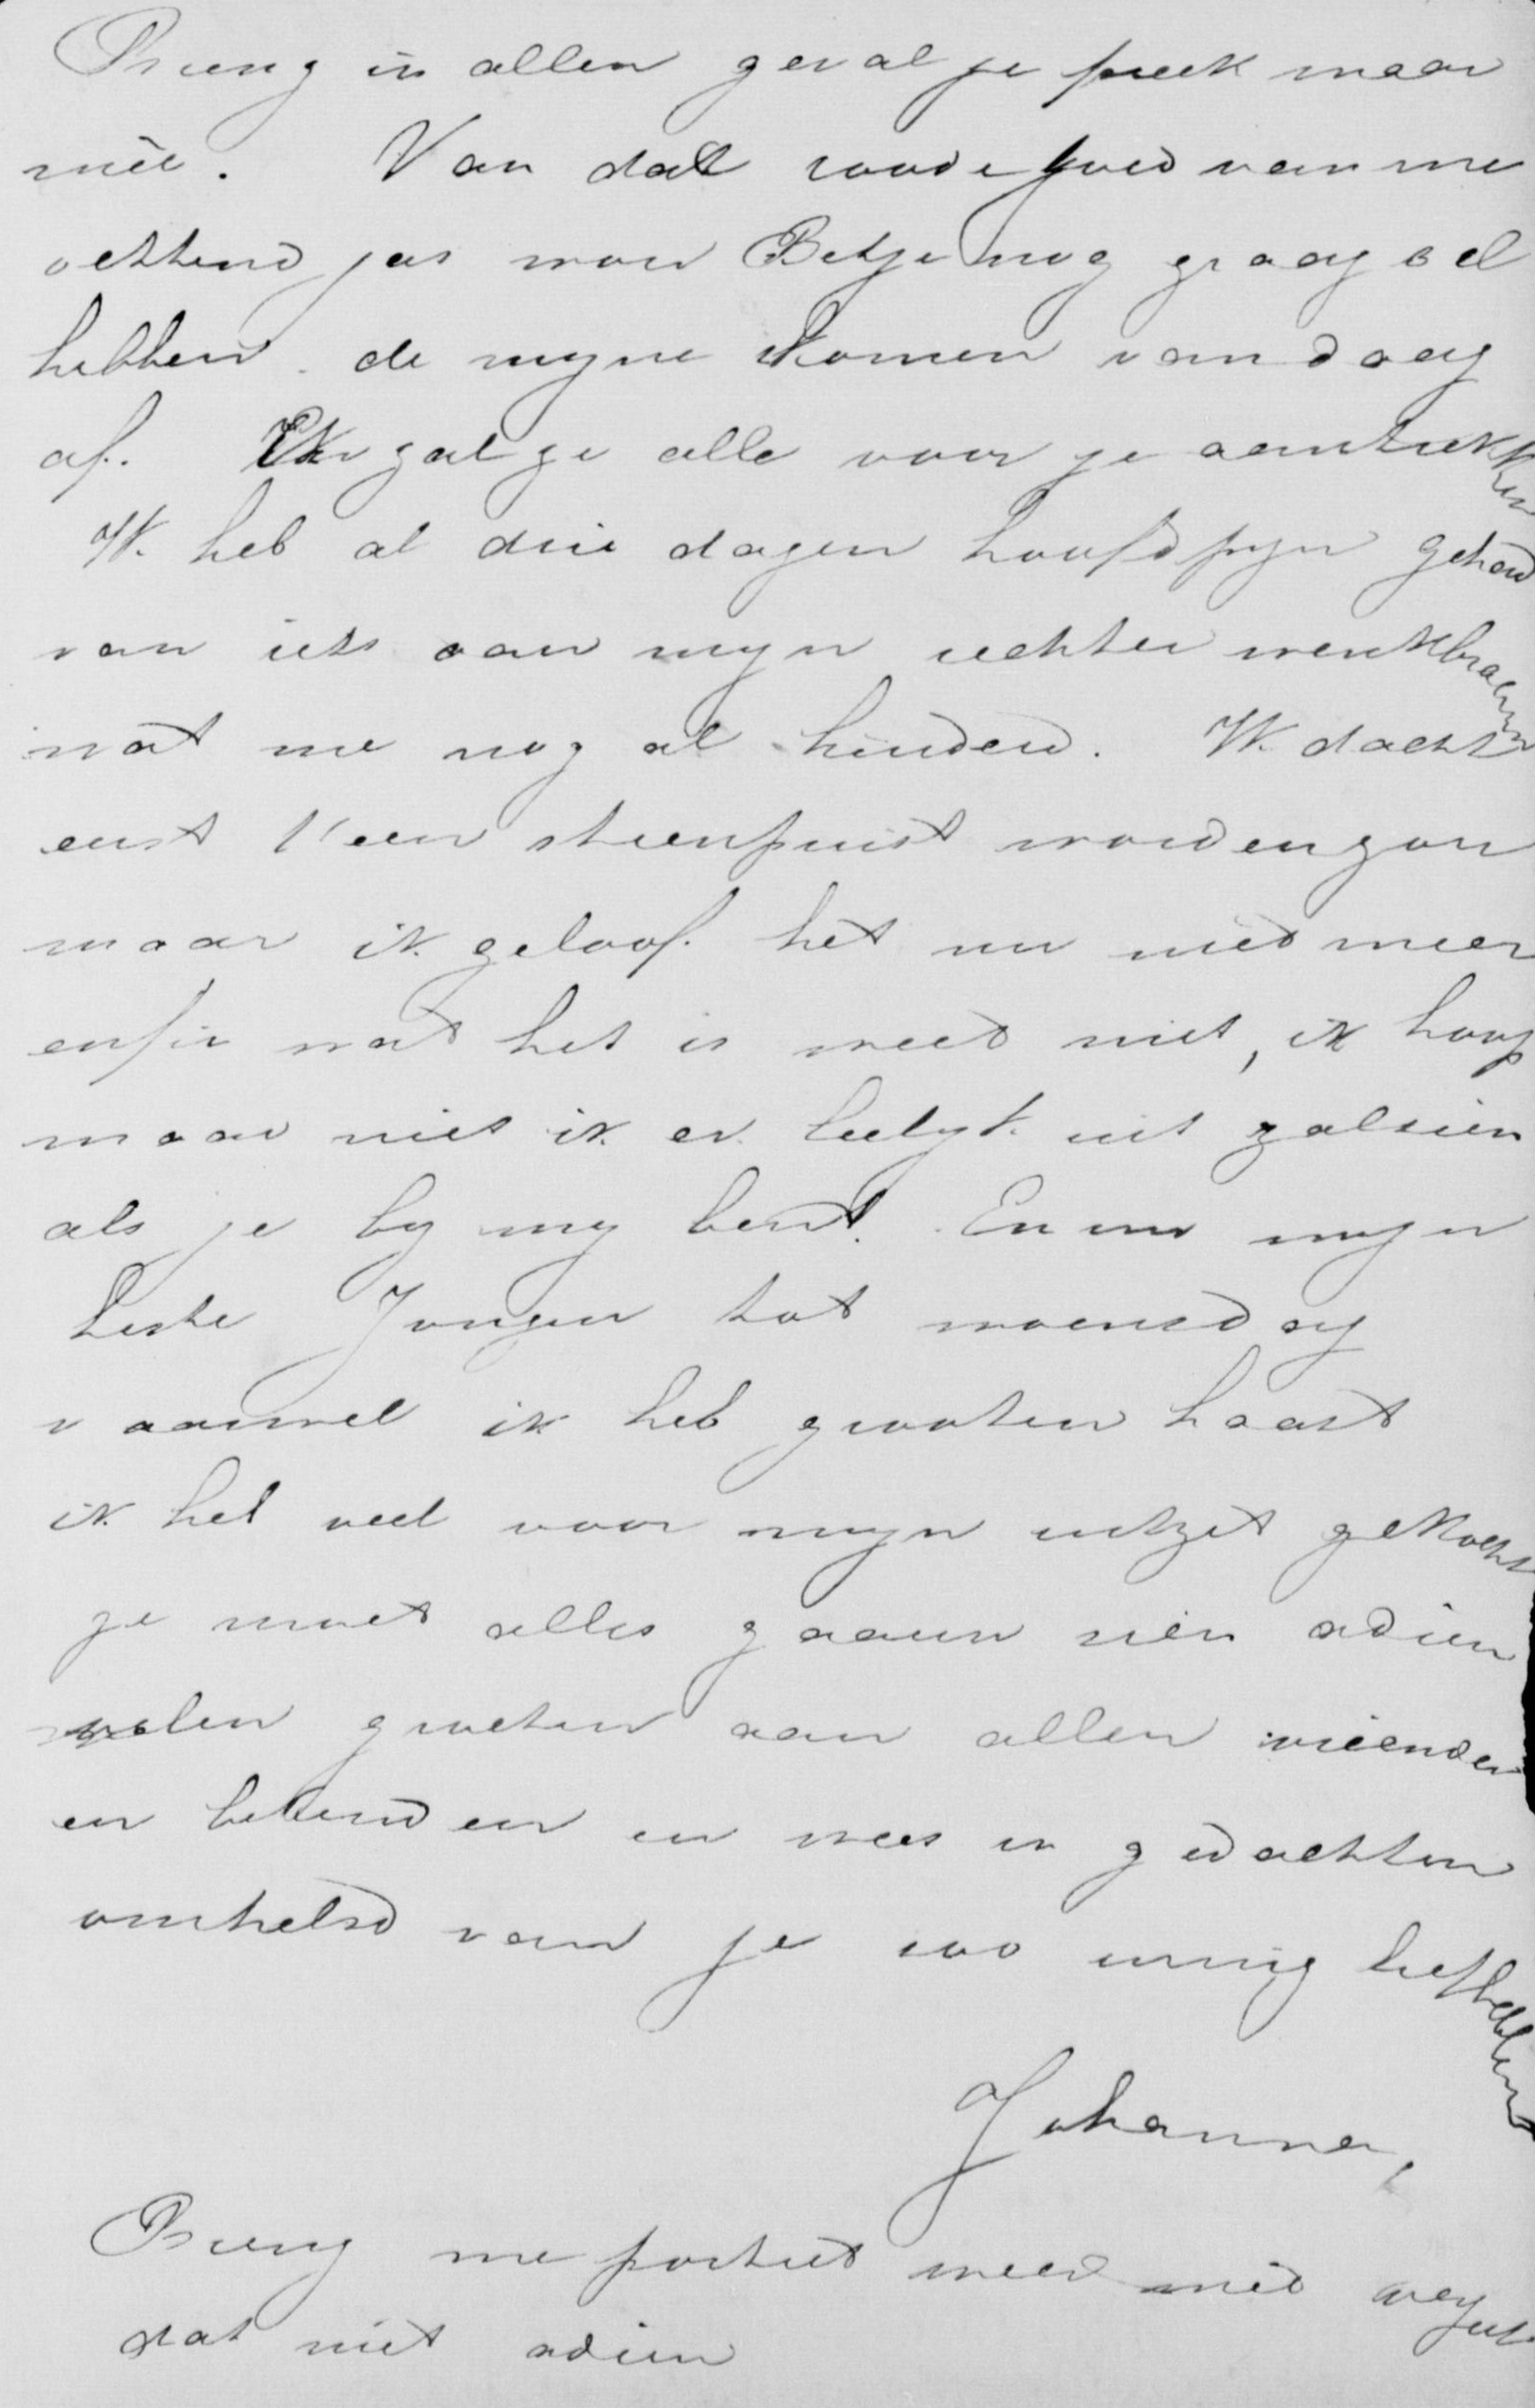 Breng in allen geval je preek maar
mêe. Van dat roode goed van me
ochtend jas wou Betje nog graag el
hebben de myne komen vandaag
af. Ik zal ze alle voor je aantrekken
Ik heb al drie dagen hoofdpyn gehad
van iets aan myn rechter wenkbrauw
wat me nog al hinderd. Ik dacht
eerst 't een steenpuist worden zou
maar ik geloof het nu niet meer
enfin wat het is weet niet, ik hoop
maar niet ik er leelyk uit zal sien
als je by my bent. En nu myn
beste Jongen tot woensdag
vaarwel ik heb grooten haast
ik heb veel voor myn uitzet gekocht
je moet alles gaaun sien adieu
velen groeten aan allen vrienden
en bekenden en wees in gedachten
omhelsd van je zoo innig liefhebbend
Johanna,
Breng me portret weer mêe vergeet
dat niet adieu